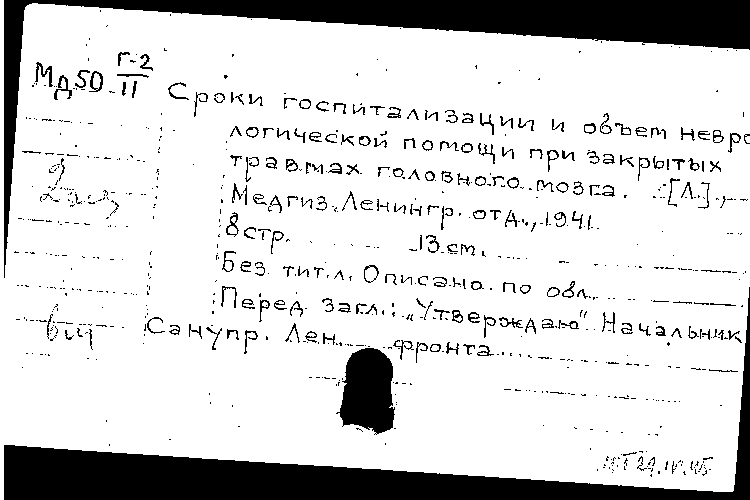 Мд50 Г-2/II Сроки госпитализации и объем невро
логической помощи при закрытых
травмах головного мозга. [Л.],
Медгиз. Ленингр. отд., 1941.
8 стр. 13 см.
Без тит. л. Описано по обл.
Перед загл.: „Утверждаю" Начальник
Санупр. Лен. фронта